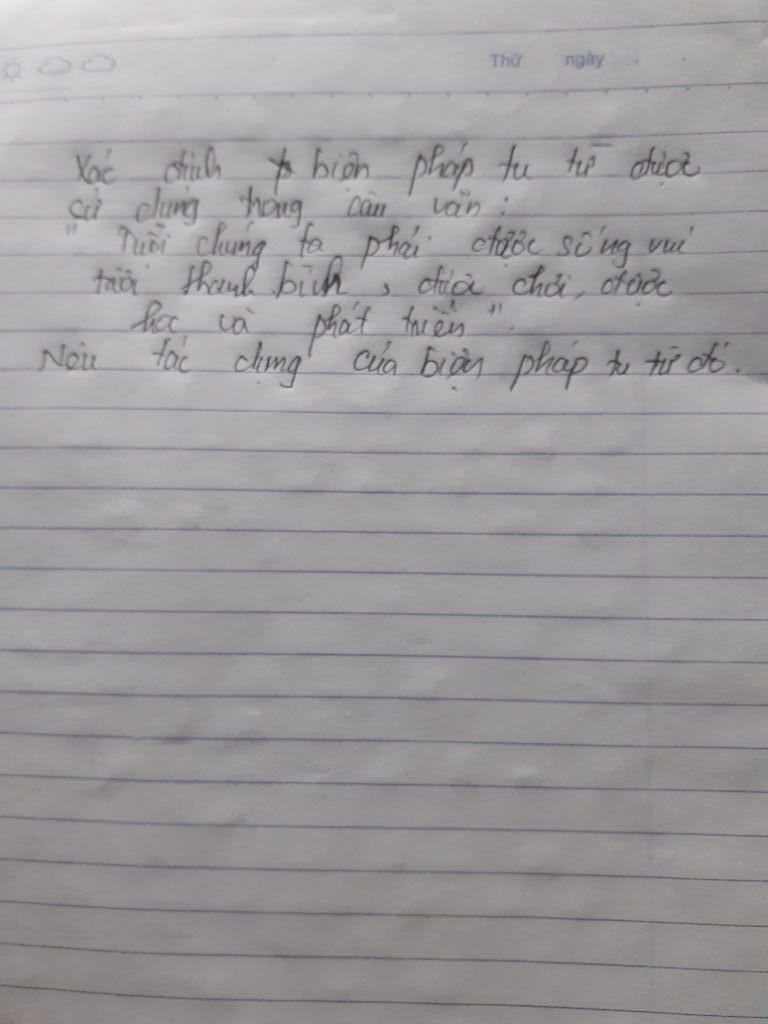 Thứ ngày
Xác định biện pháp tu từ được
sử dụng trong câu văn:
" Tuổi chúng ta phải được sống vui
tươi thanh bình, được chơi, được
học và phát triển ".
Nêu tác dụng của biện pháp tu từ đó.